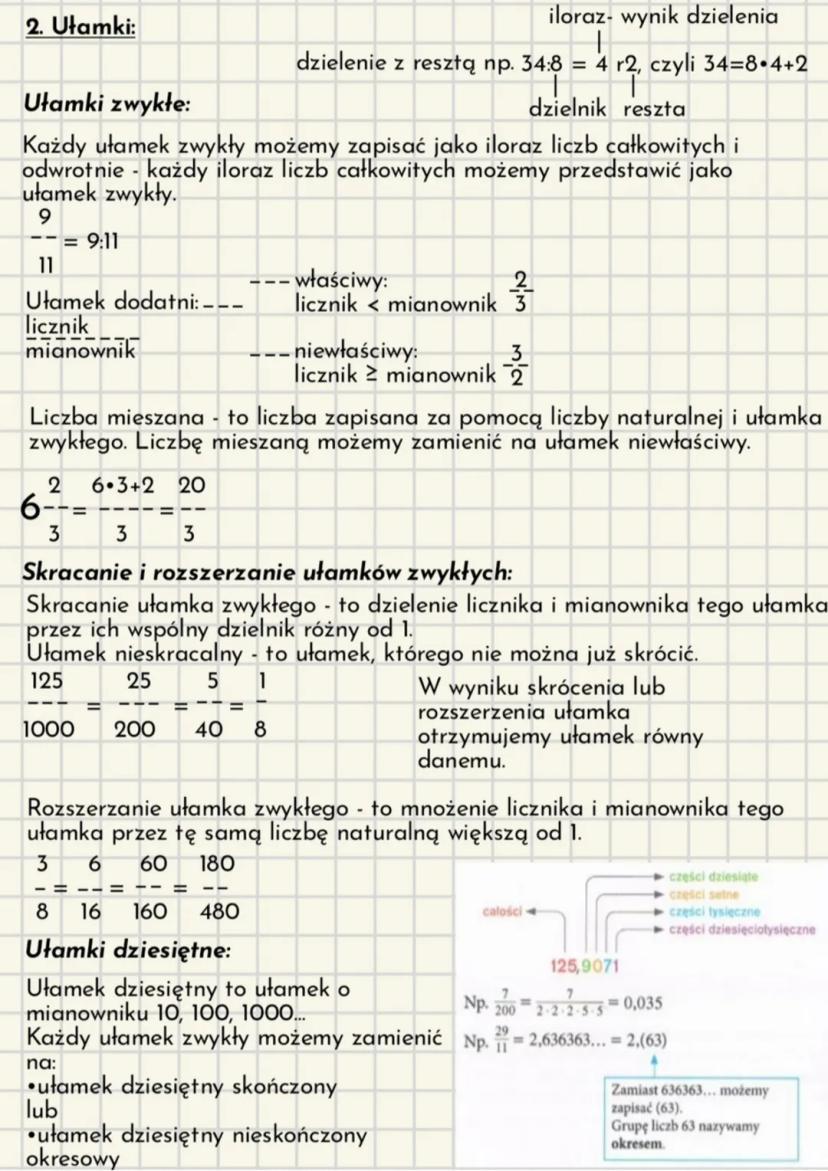 2. Ułamki:
iloraz- wynik dzielenia
dzielenie z resztą np. 34:8 = 4 r2, czyli 34=8•4+2
dzielnik reszta
Ułamki zwykłe:
Każdy ułamek zwykły możemy zapisać jako iloraz liczb całkowitych i
odwrotnie - każdy iloraz liczb całkowitych możemy przedstawić jako
ułamek zwykły.
9
-- = 9:11
11
Ułamek dodatni: ---
licznik
--------
mianownik
--- właściwy: 2
licznik < mianownik 3
--- niewłaściwy: 3
licznik ≥ mianownik 2
Liczba mieszana - to liczba zapisana za pomocą liczby naturalnej i ułamka
zwykłego. Liczbę mieszaną możemy zamienić na ułamek niewłaściwy.
2 6•3+2 20
6 -- = ---- = --
3 3 3
Skracanie i rozszerzanie ułamków zwykłych:
Skracanie ułamka zwykłego - to dzielenie licznika i mianownika tego ułamka
przez ich wspólny dzielnik różny od 1.
Ułamek nieskracalny - to ułamek, którego nie można już skrócić.
125 25 5 1
--- = --- = -- = -
1000 200 40 8
W wyniku skrócenia lub
rozszerzenia ułamka
otrzymujemy ułamek równy
danemu.
Rozszerzanie ułamka zwykłego - to mnożenie licznika i mianownika tego
ułamka przez tę samą liczbę naturalną większą od 1.
3 6 60 180
- = -- = -- = --
8 16 160 480
Ułamki dziesiętne:
Ułamek dziesiętny to ułamek o
mianowniku 10, 100, 1000...
Każdy ułamek zwykły możemy zamienić
na:
•ułamek dziesiętny skończony
lub
•ułamek dziesiętny nieskończony
okresowy
części dziesiąte
części setne
całości
części tysięczne
części dziesięciotysięczne
125,9071
Np. 7/200 = 7/2·2·2·5·5 = 0,035
Np. 29/11 = 2,636363... = 2,(63)
Zamiast 636363... możemy
zapisać (63).
Grupę liczb 63 nazywamy
okresem.